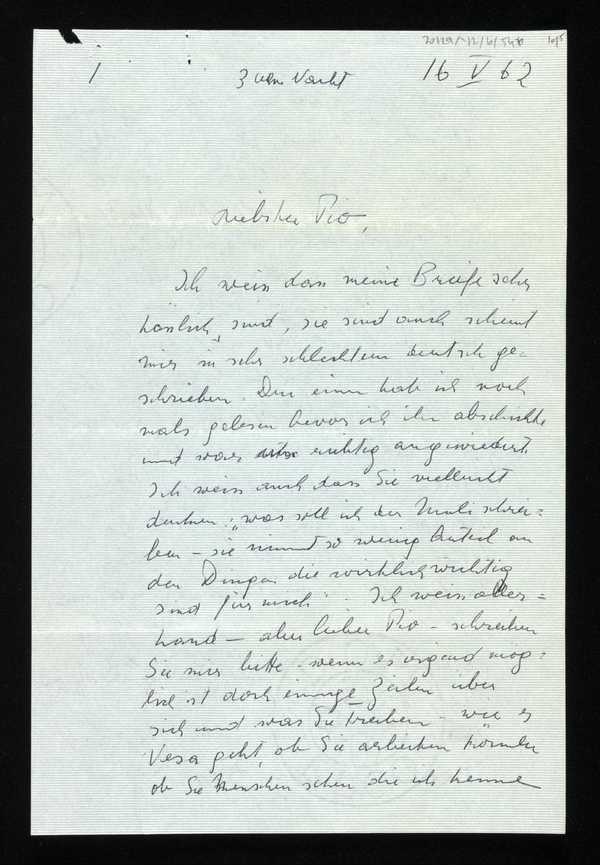 1 3 Uhr Nacht 16 V 62
Liebster Pio,
Ich weiss dass meine Briefe sehr
hässlich sind, sie sind auch scheint
mir in sehr schlechtem deutsch ge=
schrieben. Den einen hab ich noch
mals gelesen bevor ich ihn abschickte
und war richtig angewidert.
Ich weiss auch dass Sie vielleicht
denken: "was soll ich der schrei=
ben – sie nimmt so wenig Anteil an
den Dingen die wirklich wichtig
sind für mich". Ich weiss aller=
hand – aber lieber Pio – schreiben
Sie mir bitte – wenn es irgend mög=
lich ist doch einige Zeilen über
sich und was Sie treiben – wie es
Vesa geht, ob Sie arbeiten können
ob Sie Menschen sehen die ich kenne